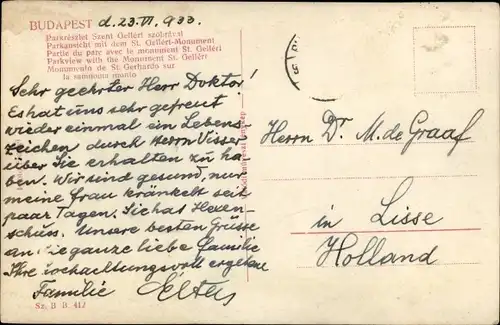 BUDAPEST d. 23. VI. 933.
Parkrészlet Szent Gellért szóbrával
Parkansicht mit dem St. Gellért-Monument
Partie du parc avec le monument St. Gellért
Parkview with the Monument St. Gellért
Monumento de St. Gerhardo sur
la samnoma monto
Sehr geehrter Herr Doktor!
Es hat uns sehr gefreut
wieder einmal ein Lebens
zeichen durch Herrn Visser
über Sie erhalten zu ha
ben. Wir sind gesund, nur
meine Frau kränkelt seit
paar Tagen, Sie hat Hexen-
schuss. Unsere besten Grüsse
an Sie ganze liebe Familie
Ihre hochachtungsvoll ergebene
Familie
Sz. B. B. 412
Herrn Dr. M. de Graaf
in Lisse
Holland